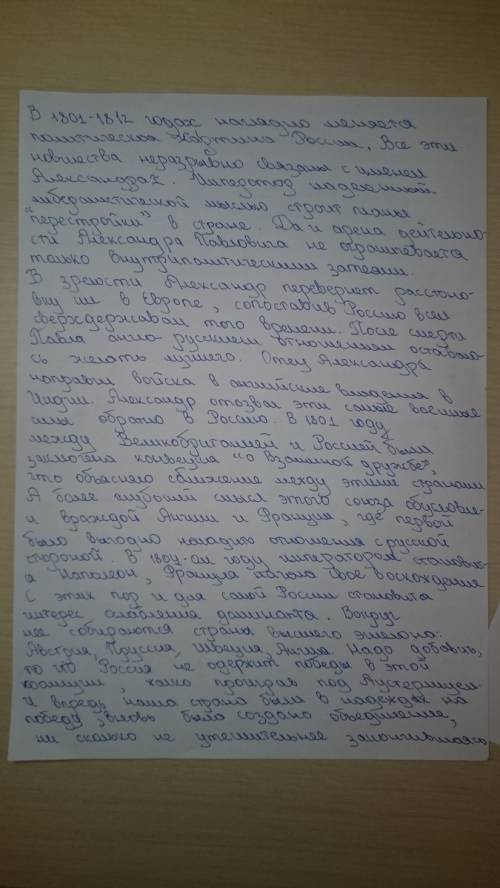 В 1801-1812 годах наглядно меняется
политическая картина России. Все эти
новшества неразрывно связаны с именем
Александра I. Император наделенный
либералистической мыслью строит планы
"перестройки" в стране. Да и арена деятельно-
сти Александра Павловича не ограничевается
только внутриполитическими затеями.
В зрелости Александр перевернет расстано-
вку сил в Европе, сопоставив Россию всем
сверхдержавам того времени. После смерти
Павла англо-русским отношениям оставало-
сь желать лучшего. Отец Александра
направил войска в английские владения в
Индии. Александр отозвал эти самые военные
силы обратно в Россию. В 1801 году
между Великобританией и Россией была
заключена конвенция "о взаимной дружбе",
что объясняло сближение между этими странами
А более глубокий смысл этого союза обусловле-
н враждой Англии и Франции, где первой
было выгодно наладить отношения с русской
стороной. В 1804-ом году императором становит-
ся Наполеон, Франция начала свое восхождение
С этих пор и для самой России становится
интерес ослабления доминанта. Вокруг
нее собираются страны высшего эшелона:
Австрия, Пруссия, Швеция, Англия. Надо добавить,
то что Россия не одержит победы в этой
коалиции, проиграв под Аустерлицем.
И впредь наша страна была в надеждах на
победу, вновь было создано объединение,
ни сколько не утешительнее закончившаяся